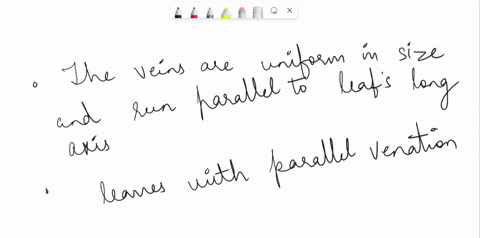 • The veins are uniform in size
and run parallel to leaf's long
axis
• leaves with parallel venation